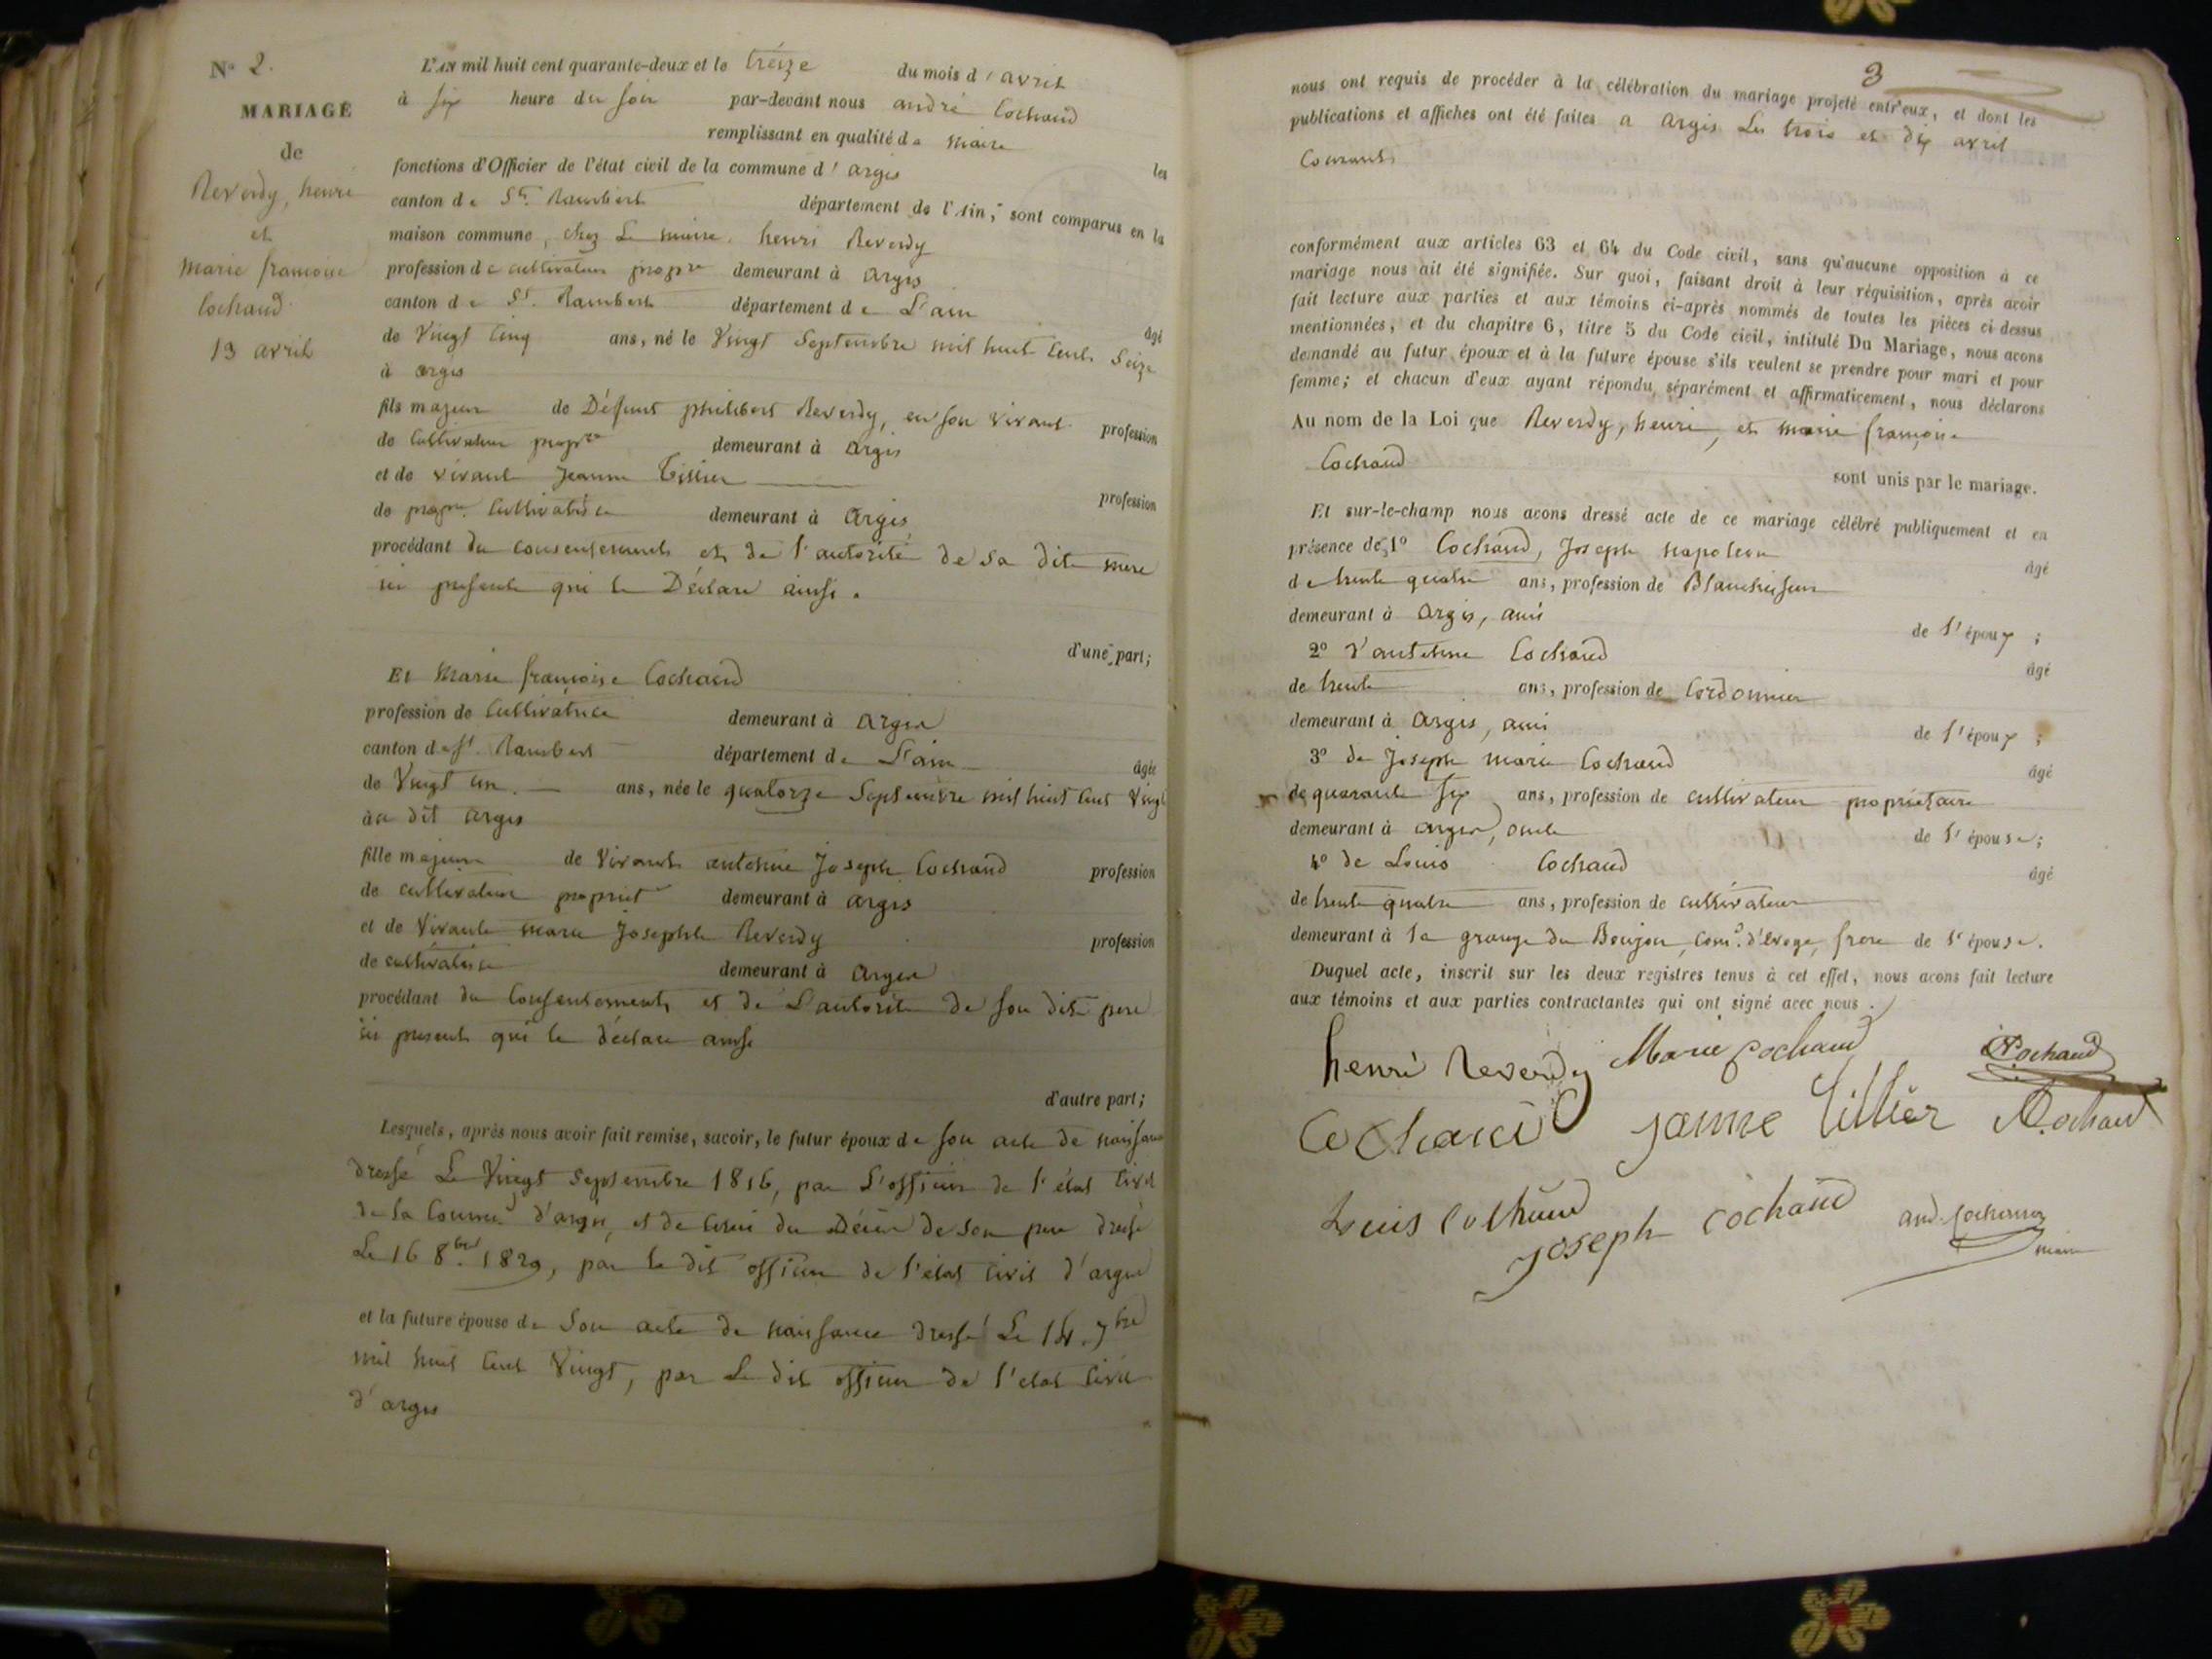 N° 2.
MARIAGE
de
Reverdy, henri
et
marie francoise
Cochaud
13 avril
L'AN mil huit cent quarante-deux et le treize du mois d'avril
à six heure du soir par-devant nous andré Cochaud
remplissant en qualité de maire les
fonctions d'Officier de l'état civil de la commune d'argis
canton de St. Rambert département de l'Ain, sont comparus en la
maison commune, chez Le maire. henri Reverdy
profession de cultivateur propre demeurant à argis
canton de St. Rambert département de L'ain âgé
de Vingt Cinq ans, né le Vingt Septembre mil huit Cent Seize
à argis
fils majeur de Défunt philibert Reverdy, en son vivant profession
de Cultivateur propre demeurant à argis
et de vivante Jeanne Tillier profession
de propre Cultivatrice demeurant à Argis
procédant du consentement et de l'autorité de sa dite mere
ici presente qui le Déclare ainsi.
d'une part;
Et Marie françoise Cochaud
profession de Cultivatrice demeurant à argis
canton de St. Rambert département de L'ain âgée
de Vingt un ans, née le quatorze Septembre mil huit Cent Vingt
au dit argis
fille majeure de Vivant antoine Joseph Cochaud profession
de cultivateur propriet demeurant à argis
et de Vivante marie Josephte Reverdy profession
de cultivatrice demeurant à argis
procédant du Consentement et de L'autorité de son dit pere
ici present qui le déclare ainsi
d'autre part;
Lesquels, après nous avoir fait remise, savoir, le futur époux de son acte de naissance
dressé Le Vingt Septembre 1816, par L'officier de l'état Civil
de la Commune d'argis, et de Celui du Décès de son pere dressé
Le 16 8bre 1829, par le dit officier de l'état Civil d'argis
et la future épouse de Son acte de naissance dressé Le 14 7bre
mil huit Cent Vingt, par Le dit officier de l'état Civil
d'argis
3
nous ont requis de procéder à la célébration du mariage projeté entr'eux, et dont les
publications et affiches ont été faites a argis Les trois et dix avril
Courant
conformément aux articles 63 et 64 du Code civil, sans qu'aucune opposition à ce
mariage nous ait été signifiée. Sur quoi, faisant droit à leur réquisition, après avoir
fait lecture aux parties et aux témoins ci-après nommés de toutes les pièces ci dessus
mentionnées, et du chapitre 6, titre 5 du Code civil, intitulé Du Mariage, nous avons
demandé au futur époux et à la future épouse s'ils veulent se prendre pour mari et pour
femme; et chacun d'eux ayant répondu séparément et affirmativement, nous déclarons
Au nom de la Loi que Reverdy, henri, et marie françoise
Cochaud sont unis par le mariage.
Et sur-le-champ nous avons dressé acte de ce mariage célébré publiquement et en
présence de 1° Cochaud, Joseph napoleon âgé
de trente quatre ans, profession de Blanchisseur
demeurant à argis, ami de l'époux;
2° d'antoine Cochaud âgé
de trente ans, profession de Cordonnier
demeurant à argis, ami de l'époux;
3° de Joseph marie Cochaud âgé
de quarante six ans, profession de cultivateur propriétaire
demeurant à argis, oncle de l'épouse;
4° de Louis Cochaud âgé
de trente quatre ans, profession de cultivateur
demeurant à la grange du Boujon, Comne. d'Evoge, frere de l'épouse.
Duquel acte, inscrit sur les deux registres tenus à cet effet, nous avons fait lecture
aux témoins et aux parties contractantes qui ont signé avec nous.
henri Reverdy Marie Cochaud Cochaud
Cochaud Janne Tillier Cochaud
Louis Cochaud
Joseph Cochaud
maire